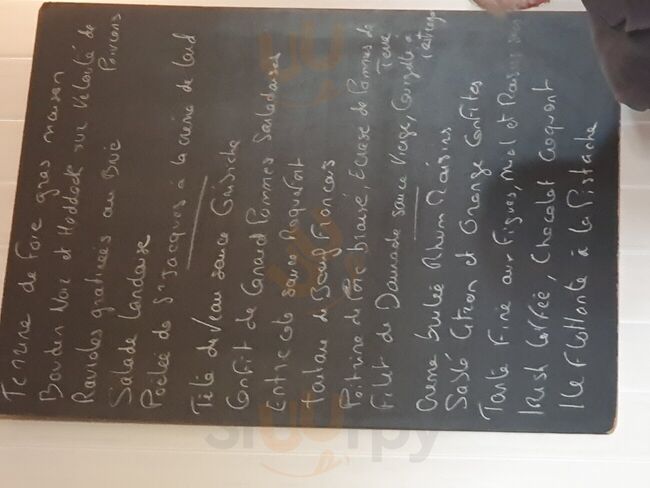 Terrine de Foie gras maison
Boudin Noir et Haddock sur velouté de Poivrons
Ravioles gratinées au Brie
Salade Landaise
Poêlée de St Jacques à la crème de Lard
Tête de Veau sauce Gribiche
Confit de Canard Pommes Sarladaises
Entrecote sauce Roquefort
Tartare de Boeuf Français
Poitrine de Porc braisé, Ecrasé de Pommes de Terre
Filet de Daurade sauce Vierge, Courgette à
Crème brulée Rhum Raisins
Sablé Citron et Orange Confites
Tarte Fine aux Figues, miel et Raisins
Irish Coffee, Chocolat Croquant
Ile Flottante à la Pistache